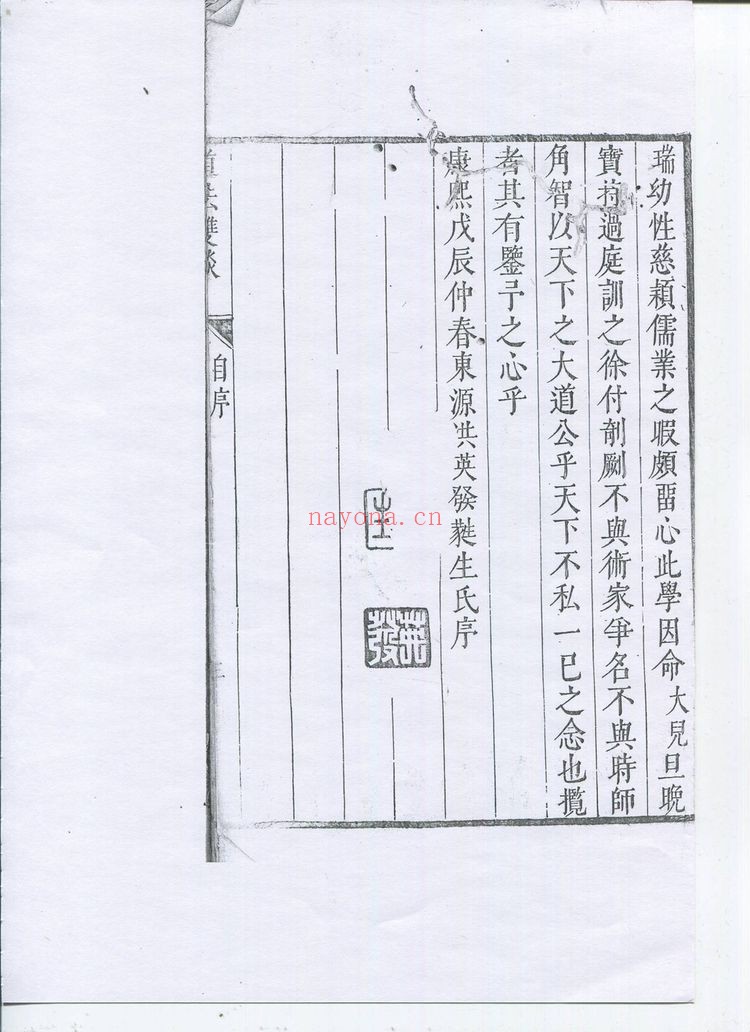 瑞幼性慈頴儒業之暇頗畱心此學因命大兒旦晩
寶持過庭訓之徐付剞劂不與術家爭名不與時師
角智以天下之大道公乎天下不私一已之念也攬
者其有鑒予之心乎
康熙戊辰仲春東源洪英發甡生氏序
英發
道法雙談
自序
nayona.cn